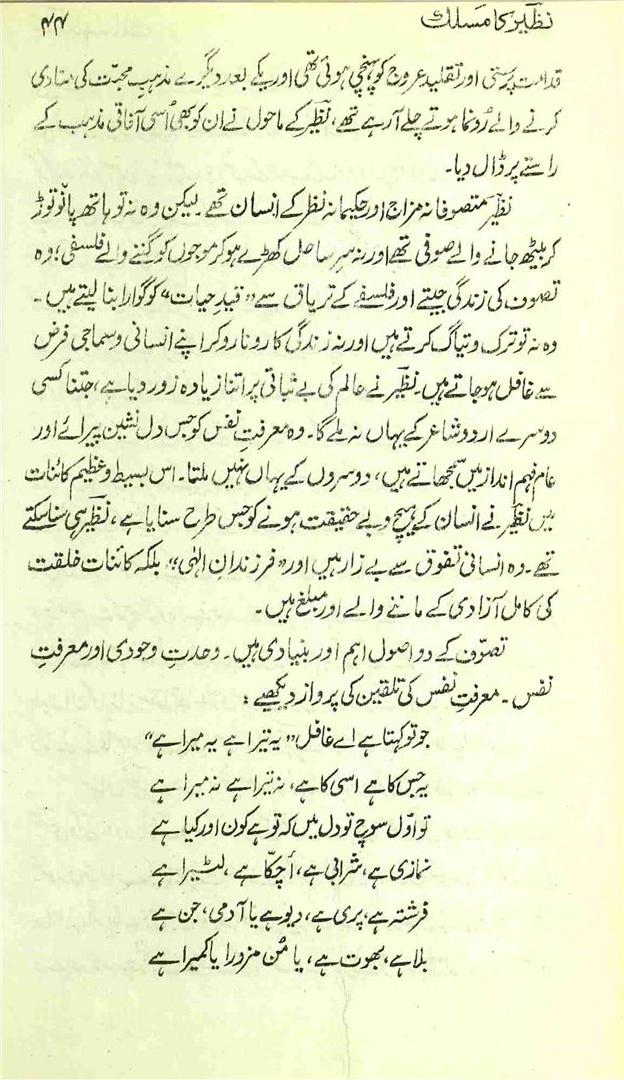 نظیرؔ کا مسلک ۴۷
قدامت پرستی اور تقلید عروج کو پہنچی ہوئی تھی اور یکے بعد دیگرے مذہبِ محبّت کی منادی
کرنے والے رُونما ہوتے چلے آرہے تھے، نظیرؔ کے ماحول نے ان کو بھی اُسی آفاقی مذہب کے
راستے پر ڈال دیا۔
نظیرؔ متصوفانہ مزاج اور حکیمانہ نظر کے انسان تھے۔ لیکن وہ نہ تو ہاتھ پانْو توڑ
کر بیٹھ جانے والے صوفی تھے اور نہ سرِ ساحل کھڑے ہو کر موجوں کو گننے والے فلسفی؛ وہ
تصوف کی زندگی جیتے اور فلسفے کے تریاق سے ”قیدِ حیات“ کو گوارا بنا لیتے ہیں۔
وہ نہ تو ترک و تیاگ کرتے ہیں اور نہ زندگی کا رونا رو کر اپنے انسانی و سماجی فرض
سے غافل ہو جاتے ہیں۔ نظیرؔ نے عالم کی بے ثباتی پر اتنا زیادہ زور دیا ہے، جتنا کسی
دوسرے اردو شاعر کے یہاں نہ ملے گا۔ وہ معرفتِ نفس کو جس دل نشین پیرائے اور
عام فہم انداز میں سمجھاتے ہیں، دوسروں کے یہاں نہیں ملتا۔ اس بسیط و عظیم کائنات
میں نظیرؔ نے انسان کے ہیچ و بے حقیقت ہونے کو جس طرح سنایا ہے، نظیرؔ ہی سنا سکتے
تھے۔ وہ انسانی تفوق سے بے زار ہیں اور ”فرزندانِ الٰہی“؛ بلکہ کائنات خلقت
کی کامل آزادی کے ماننے والے اور مبلغ ہیں۔
تصوّف کے دو اصول اہم اور بنیادی ہیں۔ وحدتِ وجودی اور معرفتِ
نفس۔ معرفتِ نفس کی تلقین کی پرواز دیکھیے:
جو تو کہتا ہے اے غافل ”یہ تیرا ہے یہ میرا ہے“
یہ جس کا ہے اسی کا ہے، نہ تیرا ہے نہ میرا ہے
تو اوّل سوچ تو دل میں کہ تو ہے کون اور کیا ہے
نمازی ہے، شرابی ہے، اُچکّا ہے، لٹیرا ہے
فرشتہ ہے، پری ہے، دیو ہے یا آدمی، جن ہے
بلا ہے، بھوت ہے، یا مُن مزورا یا کمیرا ہے